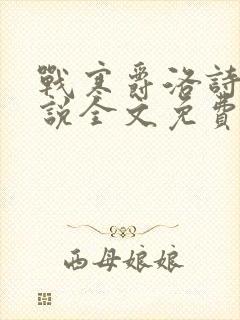 戰寒爵洛詩
說全文免費
西母娘娘